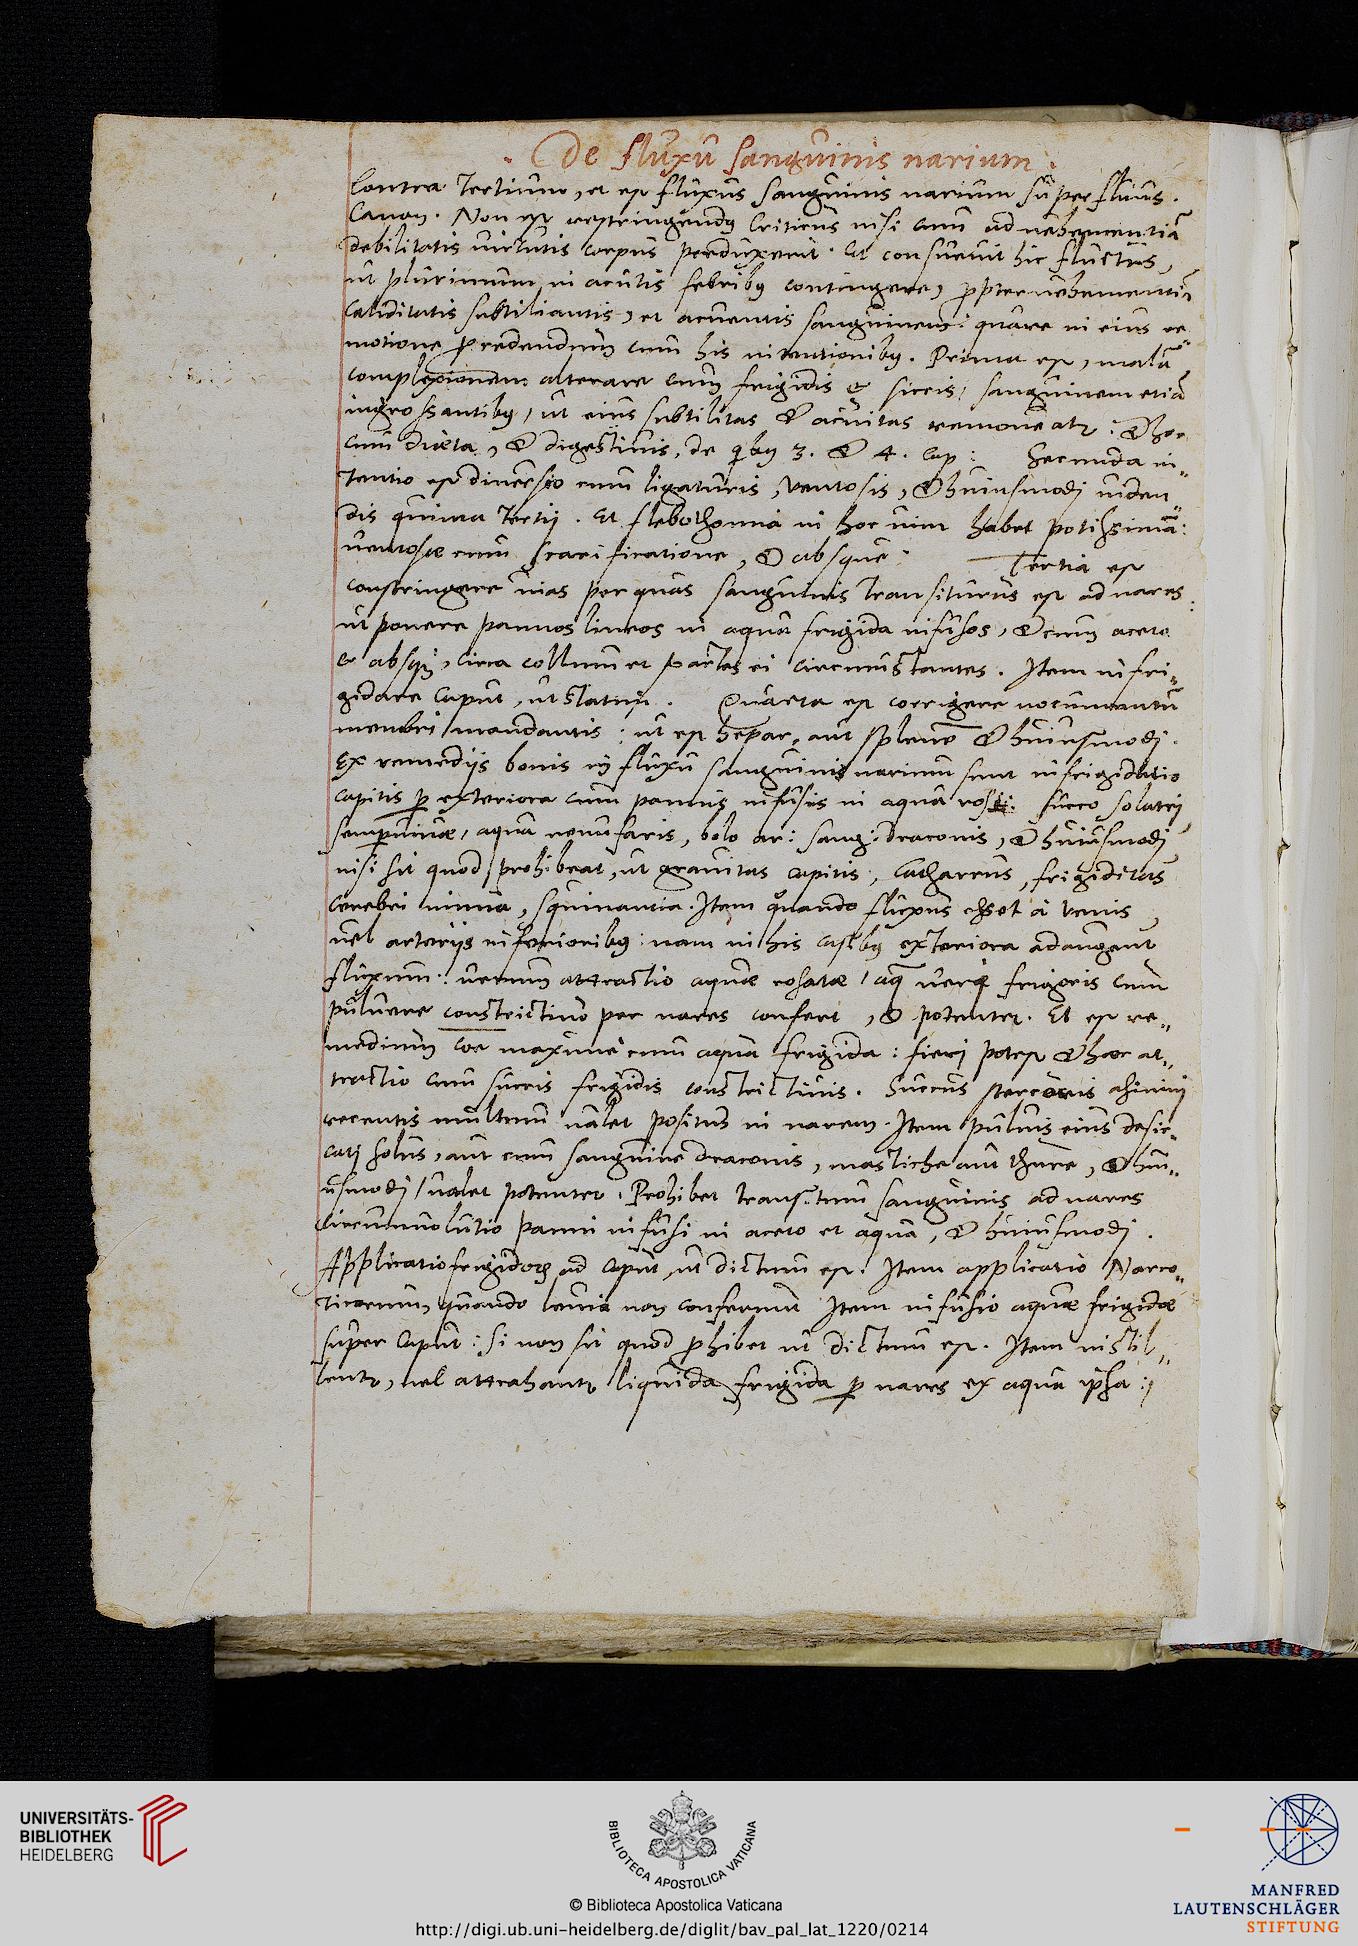 . De fluxu sanguinis narium .
Contra Tertium, et est fluxus sanguinis narium superfluus.
Canon. Non est restringendꝰ Criticus nisi cum ad uehementiã
debilitatis uirtutis corpus perduxerit. Et consueuit hic fluctus,
ut plurimum in acutis febribꝰ contingere, ꝓpter uehementiã
caliditatis subtiliantis, et acuentis sanguinem: quare in eius re„
motione ꝓcedendum cum his intentionibꝰ. Prima est, malã
complexionem alterare cum frigidis & siccis, sanguinem etiã
ingrossantibꝰ, ut eius subtilitas & acuitas remoueatr: & hoc
cum diæta, & digestiuis, de qbꝰ 3. & 4. cap: Secunda in„
tentio est diuersio cum ligaturis, uentosis, & huiusmodj uiden„
dis quinta tertij. Et flebothomia in hoc uim habet potissimã:
uentosæ cum scarificatione, & absque: Tertia est
constringere uias per quas sanguinis transiturus est ad nares:
ut ponere pannos lineos in aqua frigida infusos, & cum aceto
& absqꝫ, circa collum et partes ei circumstantes. Item infri„
gidare caput, ut statim. Quarta est corrigere nocumentũ
membri mandantis: ut est hepar, aut splene & huiusmodj.
Ex remedijs bonis in fluxu sanguinis narium sunt infrigidatio
capitis ꝑ exteriora cum pannis infusis in aqua ros: succo solatrj
semperuiuæ, aqua nenufaris, bolo ar: sang: draconis, & huiusmodj
nisi sit quod prohibeat, ut grauitas capitis, Catharrus, frigiditas
cerebri nimia, squinantia. Item quando fluxus esset à uenis,
uel arterijs inferioribꝰ: nam in his casibꝰ exteriora adaugent
fluxum: uerum attractio aquæ rosatæ, aq̃ ueræ frigoris cum
puluere constrictiuo per nares confert, & potenter. Et est re„
medium coe maximè cum aqua frigida: fierj potest & hæc at„
tractio cum succis frigidis constrictiuis. Succus stercoris asininj
recentis multum ualet positus in narem. Item puluis eius desic„
catj solus, aut cum sanguine draconis, mastiche aut thure, & hui„
usmodj, ualet potenter. Prohibet transitum sanguinis ad nares
circumuolutio panni infusi in aceto et aqua, & huiusmodj.
Applicatio frigidorꝝ ad caput, ut dictum est. Item applicatio Narco„
ticorum, quando leuia non conferunt. Item infusio aquæ frigidæ
super caput: si non sit quod ꝓhibet ut dictum est. Item instil„
lentr, uel attrahantr liquida frigida ꝑ nares ex aqua ipsa:
UNIVERSITÄTS-
BIBLIOTHEK
HEIDELBERG
BIBLIOTECA APOSTOLICA VATICANA
© Biblioteca Apostolica Vaticana
http://digi.ub.uni-heidelberg.de/diglit/bav_pal_lat_1220/0214
MANFRED
LAUTENSCHLÄGER
STIFTUNG